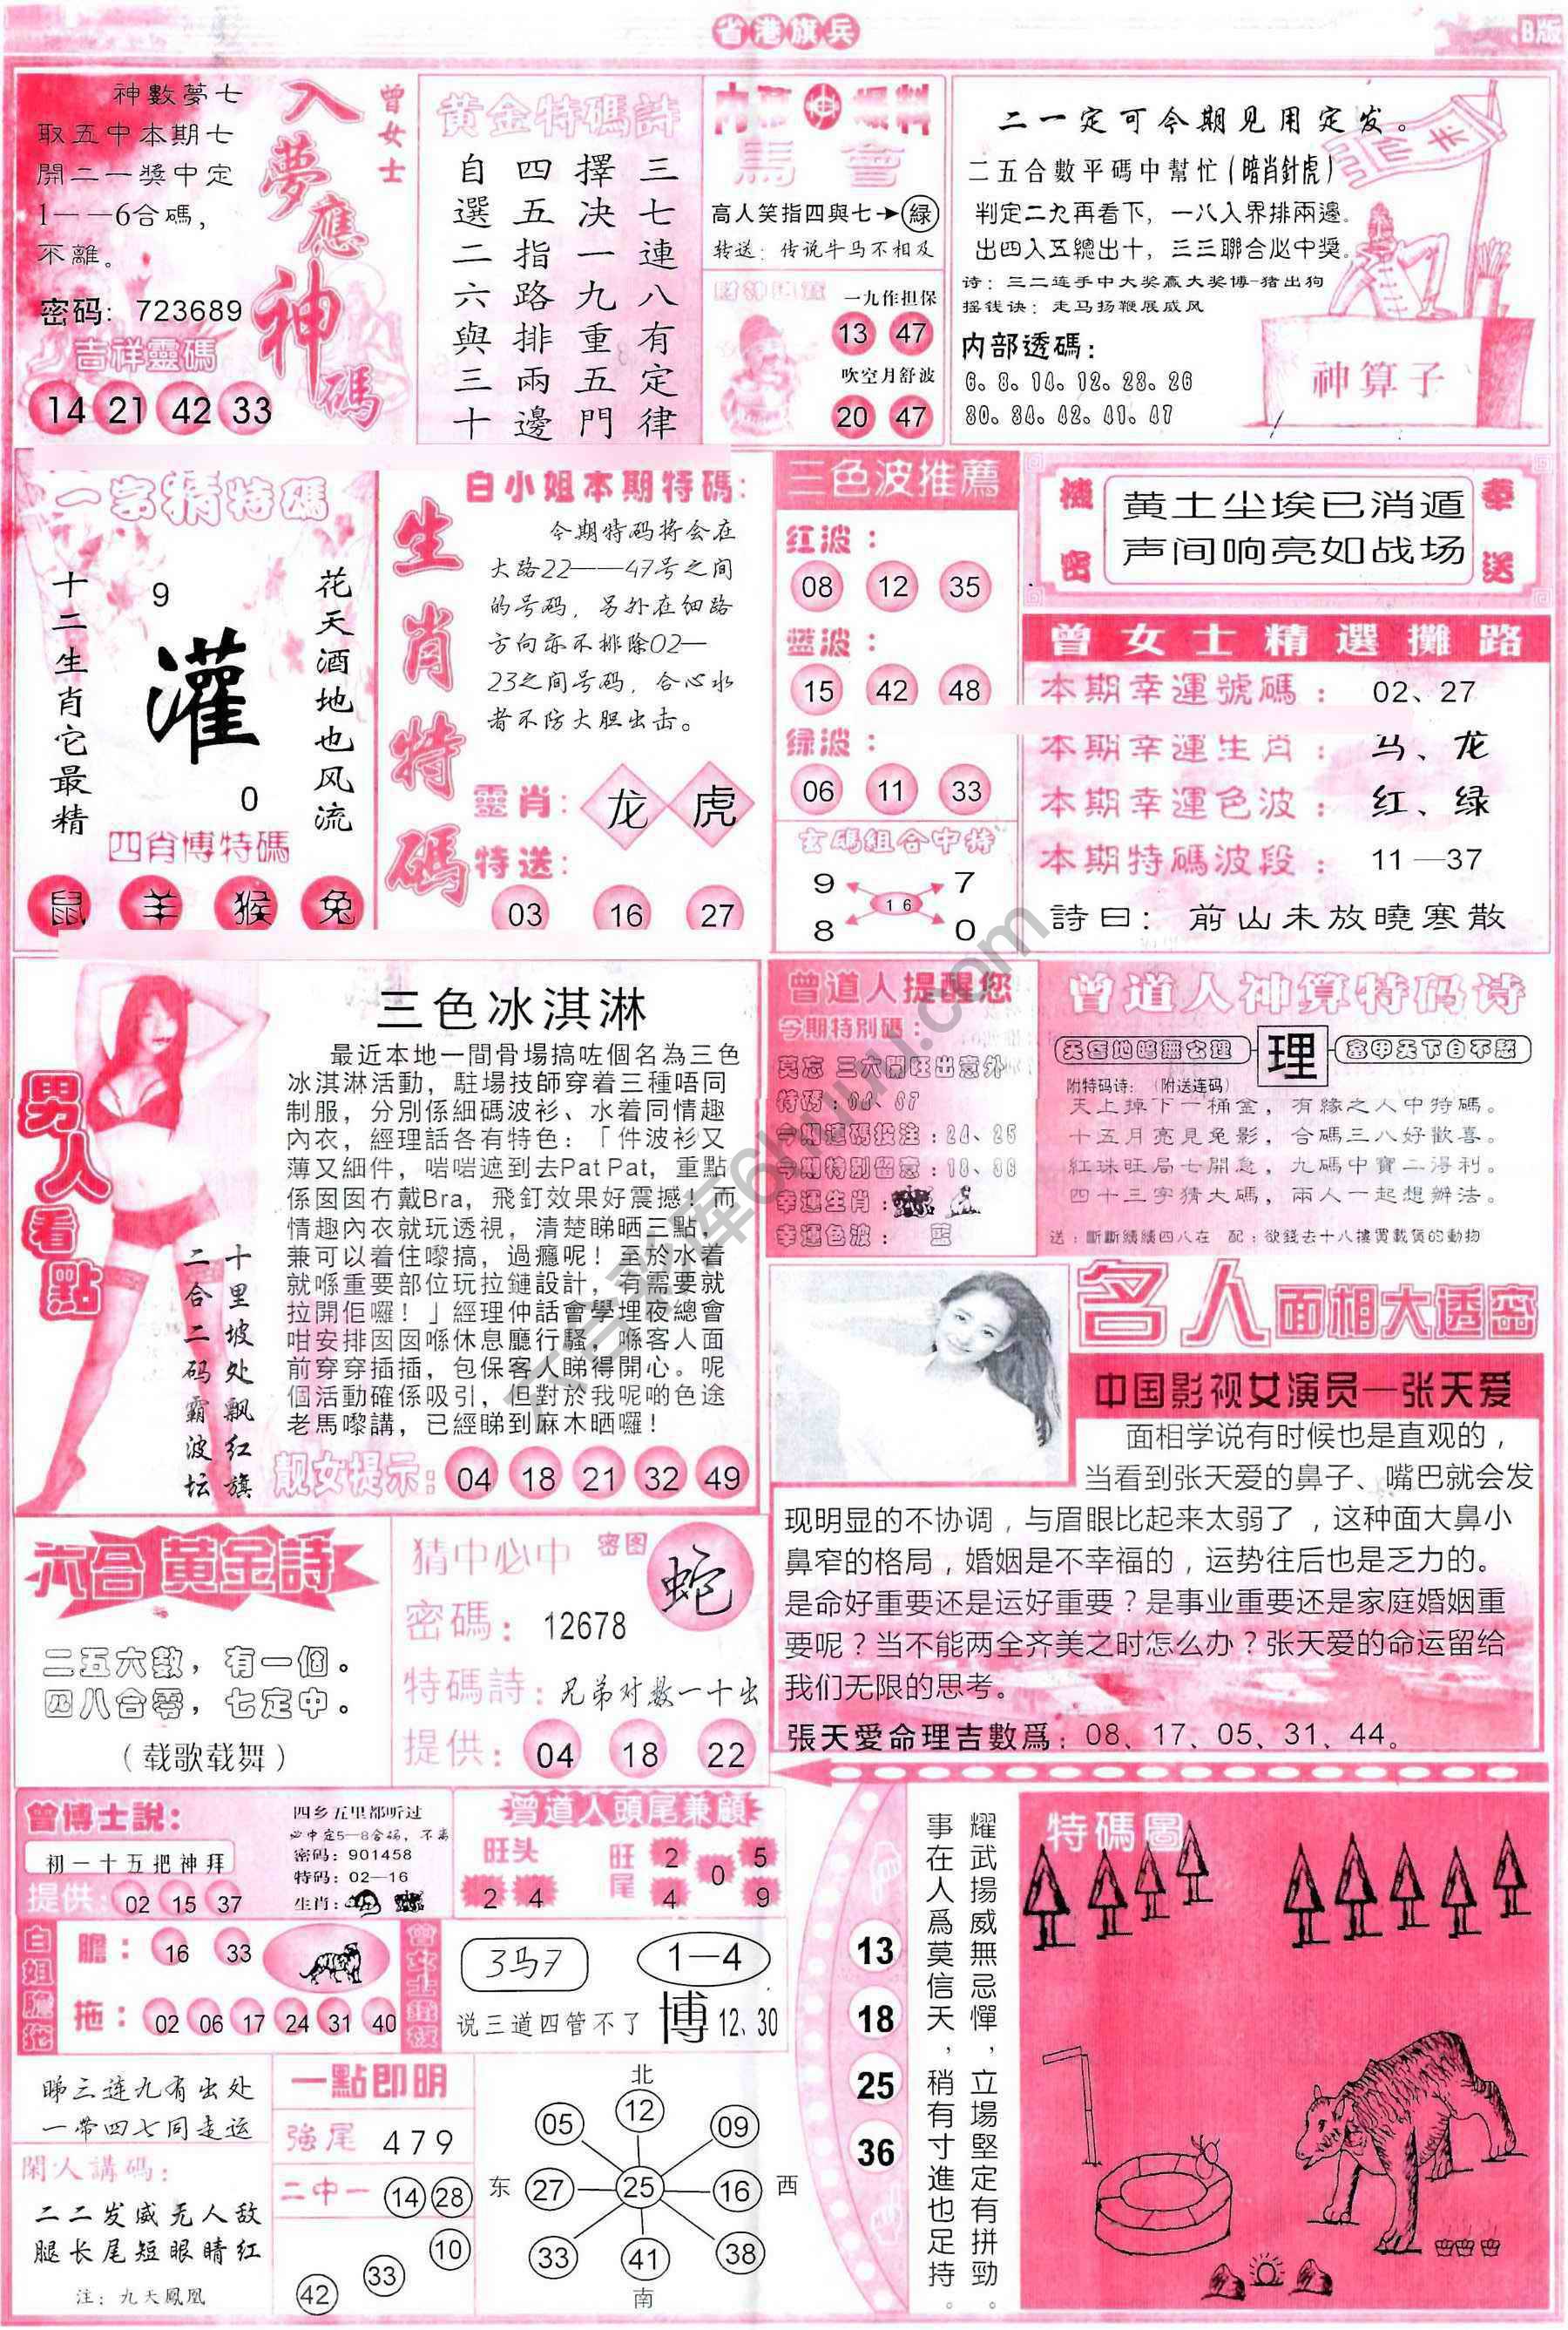 省港旗兵
B版
入夢應神碼
曾女士
神數夢七
取五中本期七
開二一獎中定
1——6合碼，
不離。
密码：723689
吉祥靈碼
14 21 42 33
黃金特碼詩
三七連八有定律
擇决一九重五門
四五指路排兩邊
自選二六與三十
馬會
高人笑指四與七→緑
转送：传说牛马不相及
一九作担保
13 47
吹空月舒波
20 47
二一定可今期见用定发。
二五合數平碼中幫忙(暗肖針虎)
判定二九再看下，一八入界排兩邊。
出四入五總出十，三三聯合必中獎。
诗：三二连手中大奖赢大奖博-猪出狗
摇钱诀：走马扬鞭展威风
内部透碼：
6。8。14。12。28。26
30。34。42。41。47
神算子
一字猜特碼
花天酒地也风流
9
灌
0
十二生肖它最精
四肖博特碼
鼠 羊 猴 兔
生肖特碼
白小姐本期特碼：
今期特码将会在
大路22——47号之间
的号码，另外在细路
方向亦不排除02—
23之间号码，合心水
者不防大胆出击。
靈肖：龙 虎
特送：
03 16 27
三色波推薦
红波：
08 12 35
蓝波：
15 42 48
绿波：
06 11 33
玄碼組合中特
9 7
16
8 0
機密
黄土尘埃已消遁
声间响亮如战场
奉送
曾女士精選攤路
本期幸運號碼：02、27
本期幸運生肖：马、龙
本期幸運色波：红、绿
本期特碼波段：11—37
詩曰：前山未放曉寒散
男人看點
十里坡处飘红旗
二合二码霸波坛
三色冰淇淋
最近本地一間骨場搞咗個名為三色
冰淇淋活動，駐場技師穿着三種唔同
制服，分別係細碼波衫、水着同情趣
內衣，經理話各有特色：「件波衫又
薄又細件，啱啱遮到去Pat Pat，重點
係囡囡冇戴Bra，飛釘效果好震撼！而
情趣內衣就玩透視，清楚睇晒三點，
兼可以着住嚟搞，過癮呢！至於水着
就喺重要部位玩拉鏈設計，有需要就
拉開佢囉！」經理仲話會學埋夜總會
咁安排囡囡喺休息廳行騷，喺客人面
前穿穿插插，包保客人睇得開心。呢
個活動確係吸引，但對於我呢啲色途
老馬嚟講，已經睇到麻木晒囉！
靓女提示：04 18 21 32 49
曾道人提醒您
今期特別碼：
莫忘 三六開旺出意外
今期連碼投注：24、25
今期特別留意：18、36
幸運生肖：
幸運色波：蓝
曾道人神算特码诗
天昏地暗無公理 理 富甲天下自不愁
附特码诗：（附送连码）
天上掉下一桶金，有緣之人中特碼。
十五月亮見兔影，合碼三八好歡喜。
紅珠旺局七開急，九碼中寶二得利。
四十三字猜大碼，兩人一起想辦法。
送：斷斷續續四八在 配：欲錢去十八樓買載貨的動物
名人面相大透密
中国影视女演员—张天爱
面相学说有时候也是直观的，
当看到张天爱的鼻子、嘴巴就会发
现明显的不协调，与眉眼比起来太弱了，这种面大鼻小
鼻窄的格局，婚姻是不幸福的，运势往后也是乏力的。
是命好重要还是运好重要？是事业重要还是家庭婚姻重
要呢？当不能两全齐美之时怎么办？张天爱的命运留给
我们无限的思考。
張天愛命理吉數爲：08、17、05、31、44。
六合黄金詩
二五六數，有一個。
四八合零，七定中。
（载歌载舞）
猜中必中 密图 蛇
密碼：12678
特碼詩：兄弟对数一十出
提供：04 18 22
曾博士説：
初一十五把神拜
提供：02 15 37
四乡五里都听过
必中定5—8合码，不离
密码：901458
特码：02—16
生肖：
曾道人頭尾兼顧
旺头 2 4
旺尾 2 5 0 4 9
白姐膽拖
膽：16 33
拖：02 06 17 24 31 40
3马7
1—4
说三道四管不了 博 12、30
睇三连九有出处
一带四七同走运
閑人講碼：
二二发威无人敌
腿长尾短眼睛红
注：九天鳳凰
一點即明
強尾 479
二中一 14 28
10
33
42
北
05 12 09
东 27 25 16 西
33 41 38
南
13
18
25
36
耀武揚威無忌憚，立場堅定有拼勁。
事在人爲莫信天，稍有寸進也足持。
特碼圖
六合彩库6huu.com